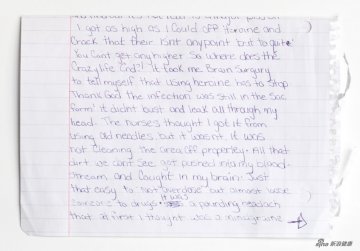 I got as high as I could off Heroine and
Crack that their isnt anypoint but to quit!
You Cant get any higher. So where does the
Crazy life End? It took me Brain Surgery
to tell myself that using heroine has to Stop.
Thank God the infection was still in the Sac
form it didnt bust and leak all through my
head. The nurses thought I got it from
using old needles but it wasnt. It was
not Cleaning the area off properly. All that
dirt we cant see, got pushed into my blood-
Stream and Caught in my brain! Just
that easy to not overdose but almost lose
Someone to drugs. It was a pounding headach
that at first I thought was a migraine